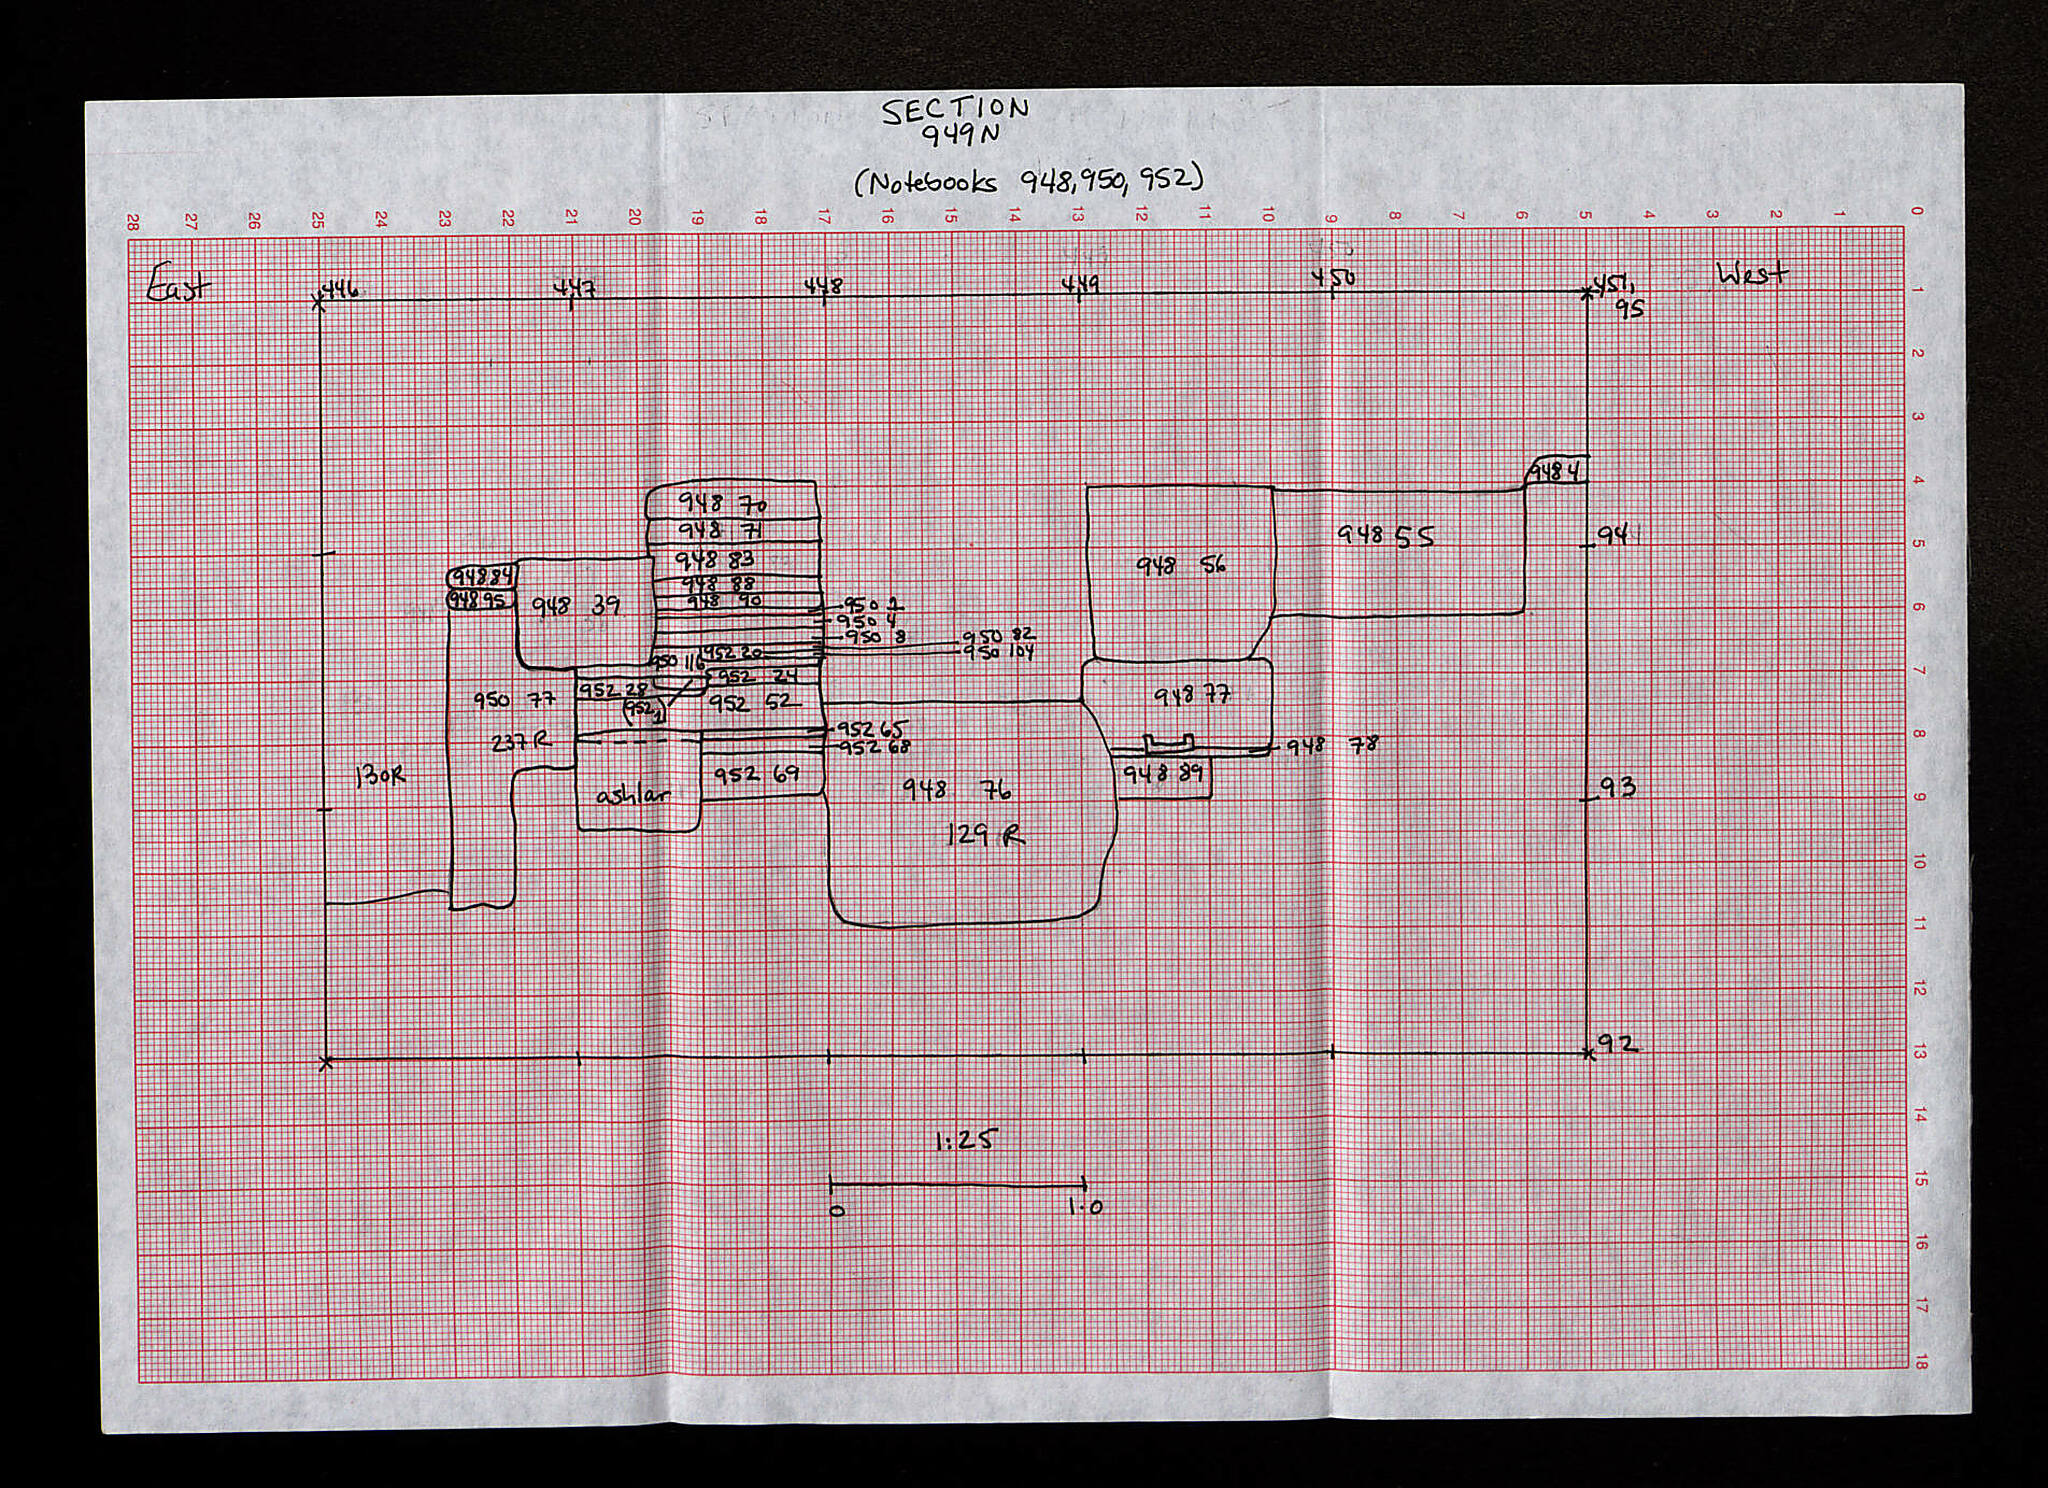 SECTION
949N
(Notebooks 948, 950, 952)
28 27 26 25 24 23 22 21 20 19 18 17 16 15 14 13 12 11 10 9 8 7 6 5 4 3 2 1 0
East
446 447 448 449 450 451,
95
West
1
2
3
4
5
6
7
8
9
10
11
12
13
14
15
16
17
18
948 4
948 70
948 71
948 83
948 88
948 90
948 84
948 95
948 39
948 56
948 55
94
950 4
950 8
950 82
950 104
952 20
950 116
952 24
952 28
952 52
(952 1)
950 77
948 77
237 R
952 65
952 68
948 78
130R
952 69
ashlar
948 76
948 89
93
129 R
92
1:25
0 1.0